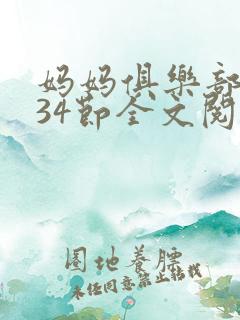 妈妈俱樂部
34節全文閱
圈地養膘
未经同意禁止转载